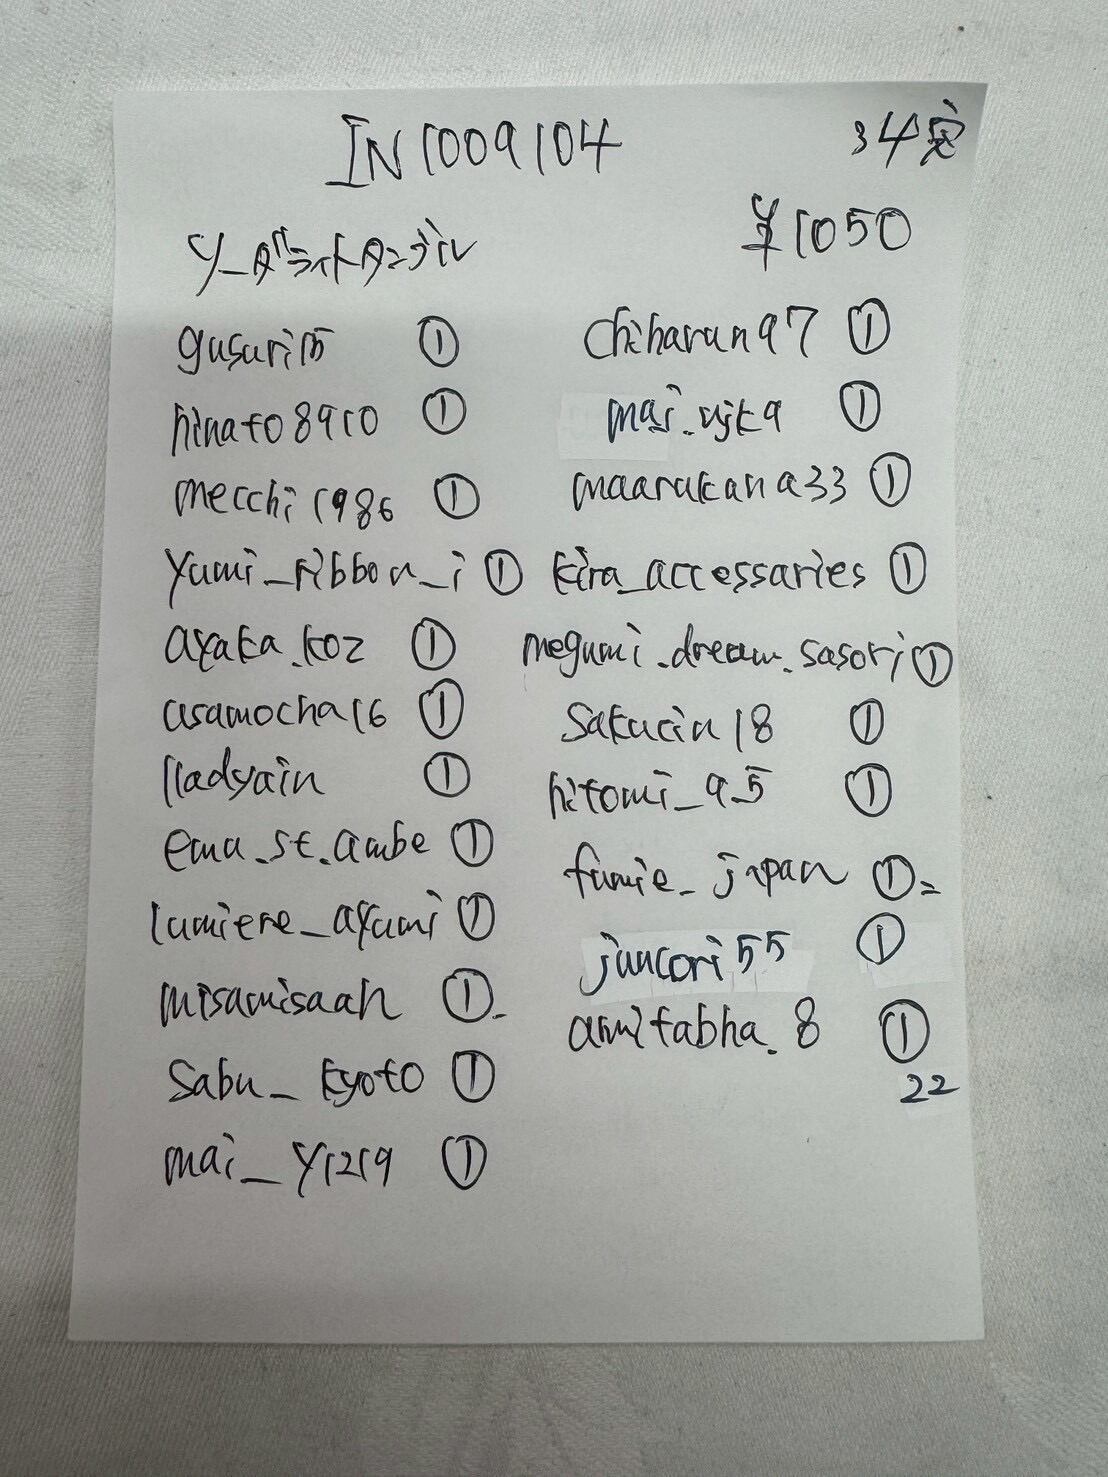 IN1009104
34
¥1050
ソーダライトタンブル
gusuri15 ①
hinato8910 ①
mecchi1986 ①
yumi_ribbon_i ①
ayaka.koz ①
asamocha16 ①
lladyain ①
emu.st.ambe ①
lumiere_ayumi ①
misamisaah ①
sabu_kyoto ①
mai_y1219 ①
chiharun97 ①
①
maarukana33 ①
kira_accessaries ①
megumi.dream.sasori ①
sakurin18 ①
hitomi_95 ①
fumie_japan ①
juncori55 ①
amitabha.8 ①
22